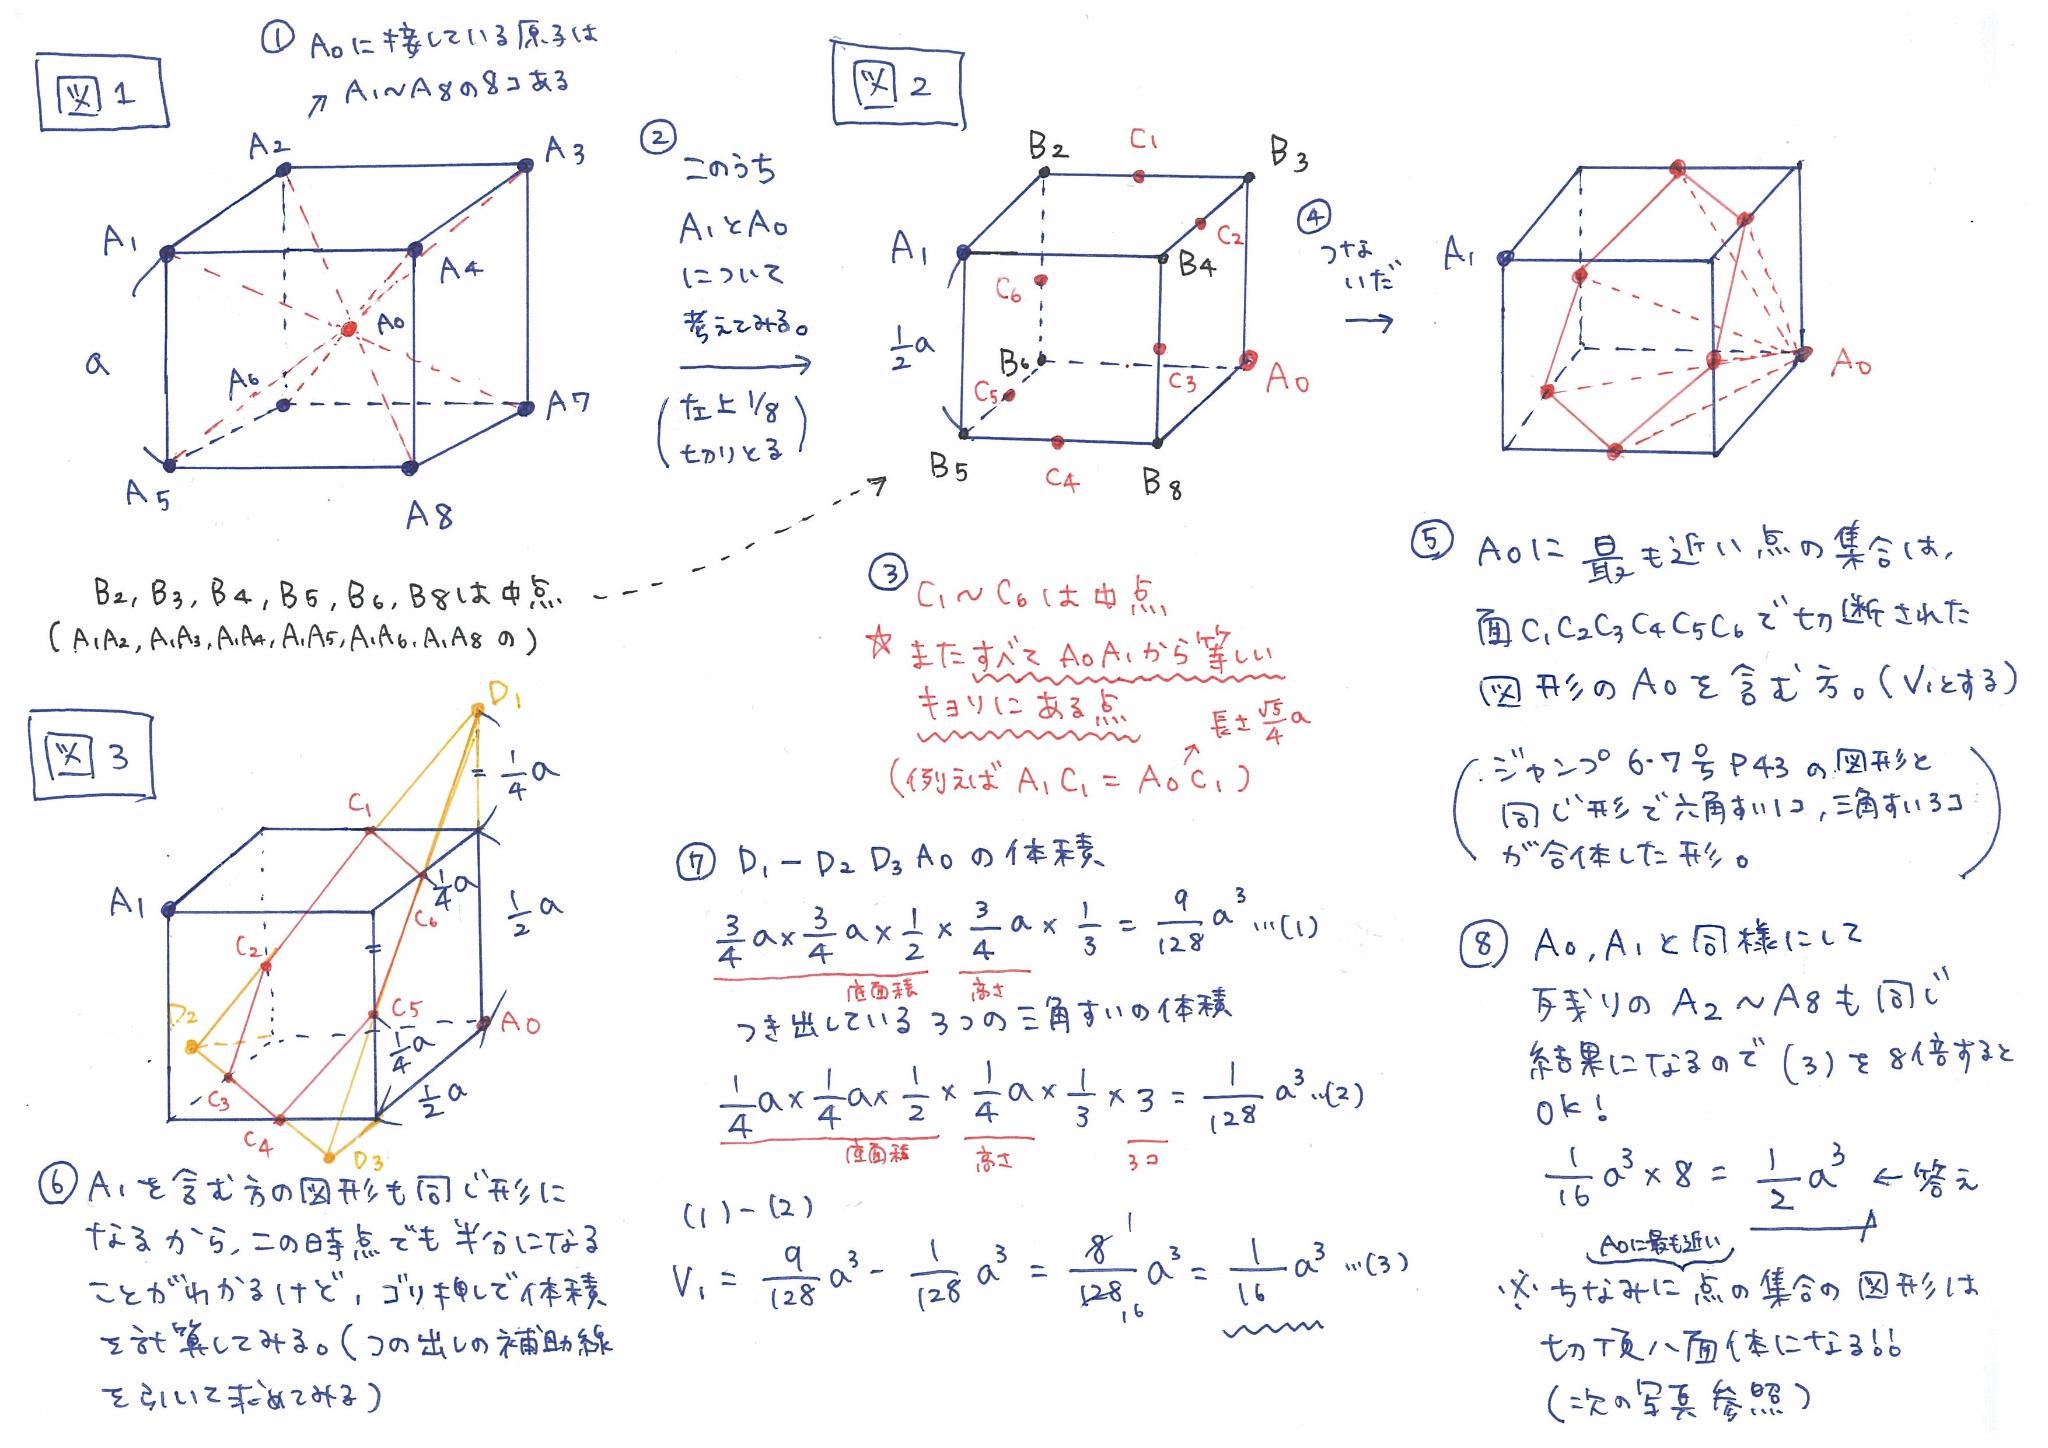 図1
① A0に接している原子は
A1〜A8の8コある
A2
A3
A1
A4
A0
a
A6
A7
A5
A8
② このうち
A1とA0
について
考えてみる。
(左上1/8
切りとる)
図2
B2
C1
B3
A1
C2
B4
C6
1/2 a
B6
C3
A0
C5
B5
C4
B8
④ つな
いだ
A1
A0
B2, B3, B4, B5, B6, B8は中点
(A1A2, A1A3, A1A4, A1A5, A1A6, A1A8の)
③ C1〜C6は中点
☆またすべてA0A1から等しい
キョリにある点
長さ√5/4 a
(例えばA1C1 = A0C1)
⑤ A0に最も近い点の集合は、
面C1C2C3C4C5C6で切断された
図形のA0を含む方。(V1とする)
(ジャンプ6・7号P43の図形と
同じ形で六角すい1コ, 三角すい3コ
が合体した形。)
図3
D1
=1/4 a
C1
1/4 a
C6
A1
1/2 a
C2
=
C5
D2
A0
1/4 a
C3
1/2 a
C4
D3
⑥ A1を含む方の図形も同じ形に
なるから、この時点でも半分になる
ことがわかるけど, ゴリ押しで体積
を計算してみる。(つの出しの補助線
を引いて求めてみる)
⑦ D1-D2D3A0の体積
3/4 a × 3/4 a × 1/2 × 3/4 a × 1/3 = 9/128 a³ …(1)
底面積 高さ
つき出している3つの三角すいの体積
1/4 a × 1/4 a × 1/2 × 1/4 a × 1/3 × 3 = 1/128 a³ …(2)
底面積 高さ 3コ
(1)-(2)
V1 = 9/128 a³ - 1/128 a³ = 8/128 a³ = 1/16 a³ …(3)
1
16
⑧ A0, A1と同様にして
残りのA2〜A8も同じ
結果になるので(3)を8倍すると
OK!
1/16 a³ × 8 = 1/2 a³ ←答え
A0に最も近い
※ちなみに点の集合の図形は
切頂八面体になる!!
(次の写真参照)